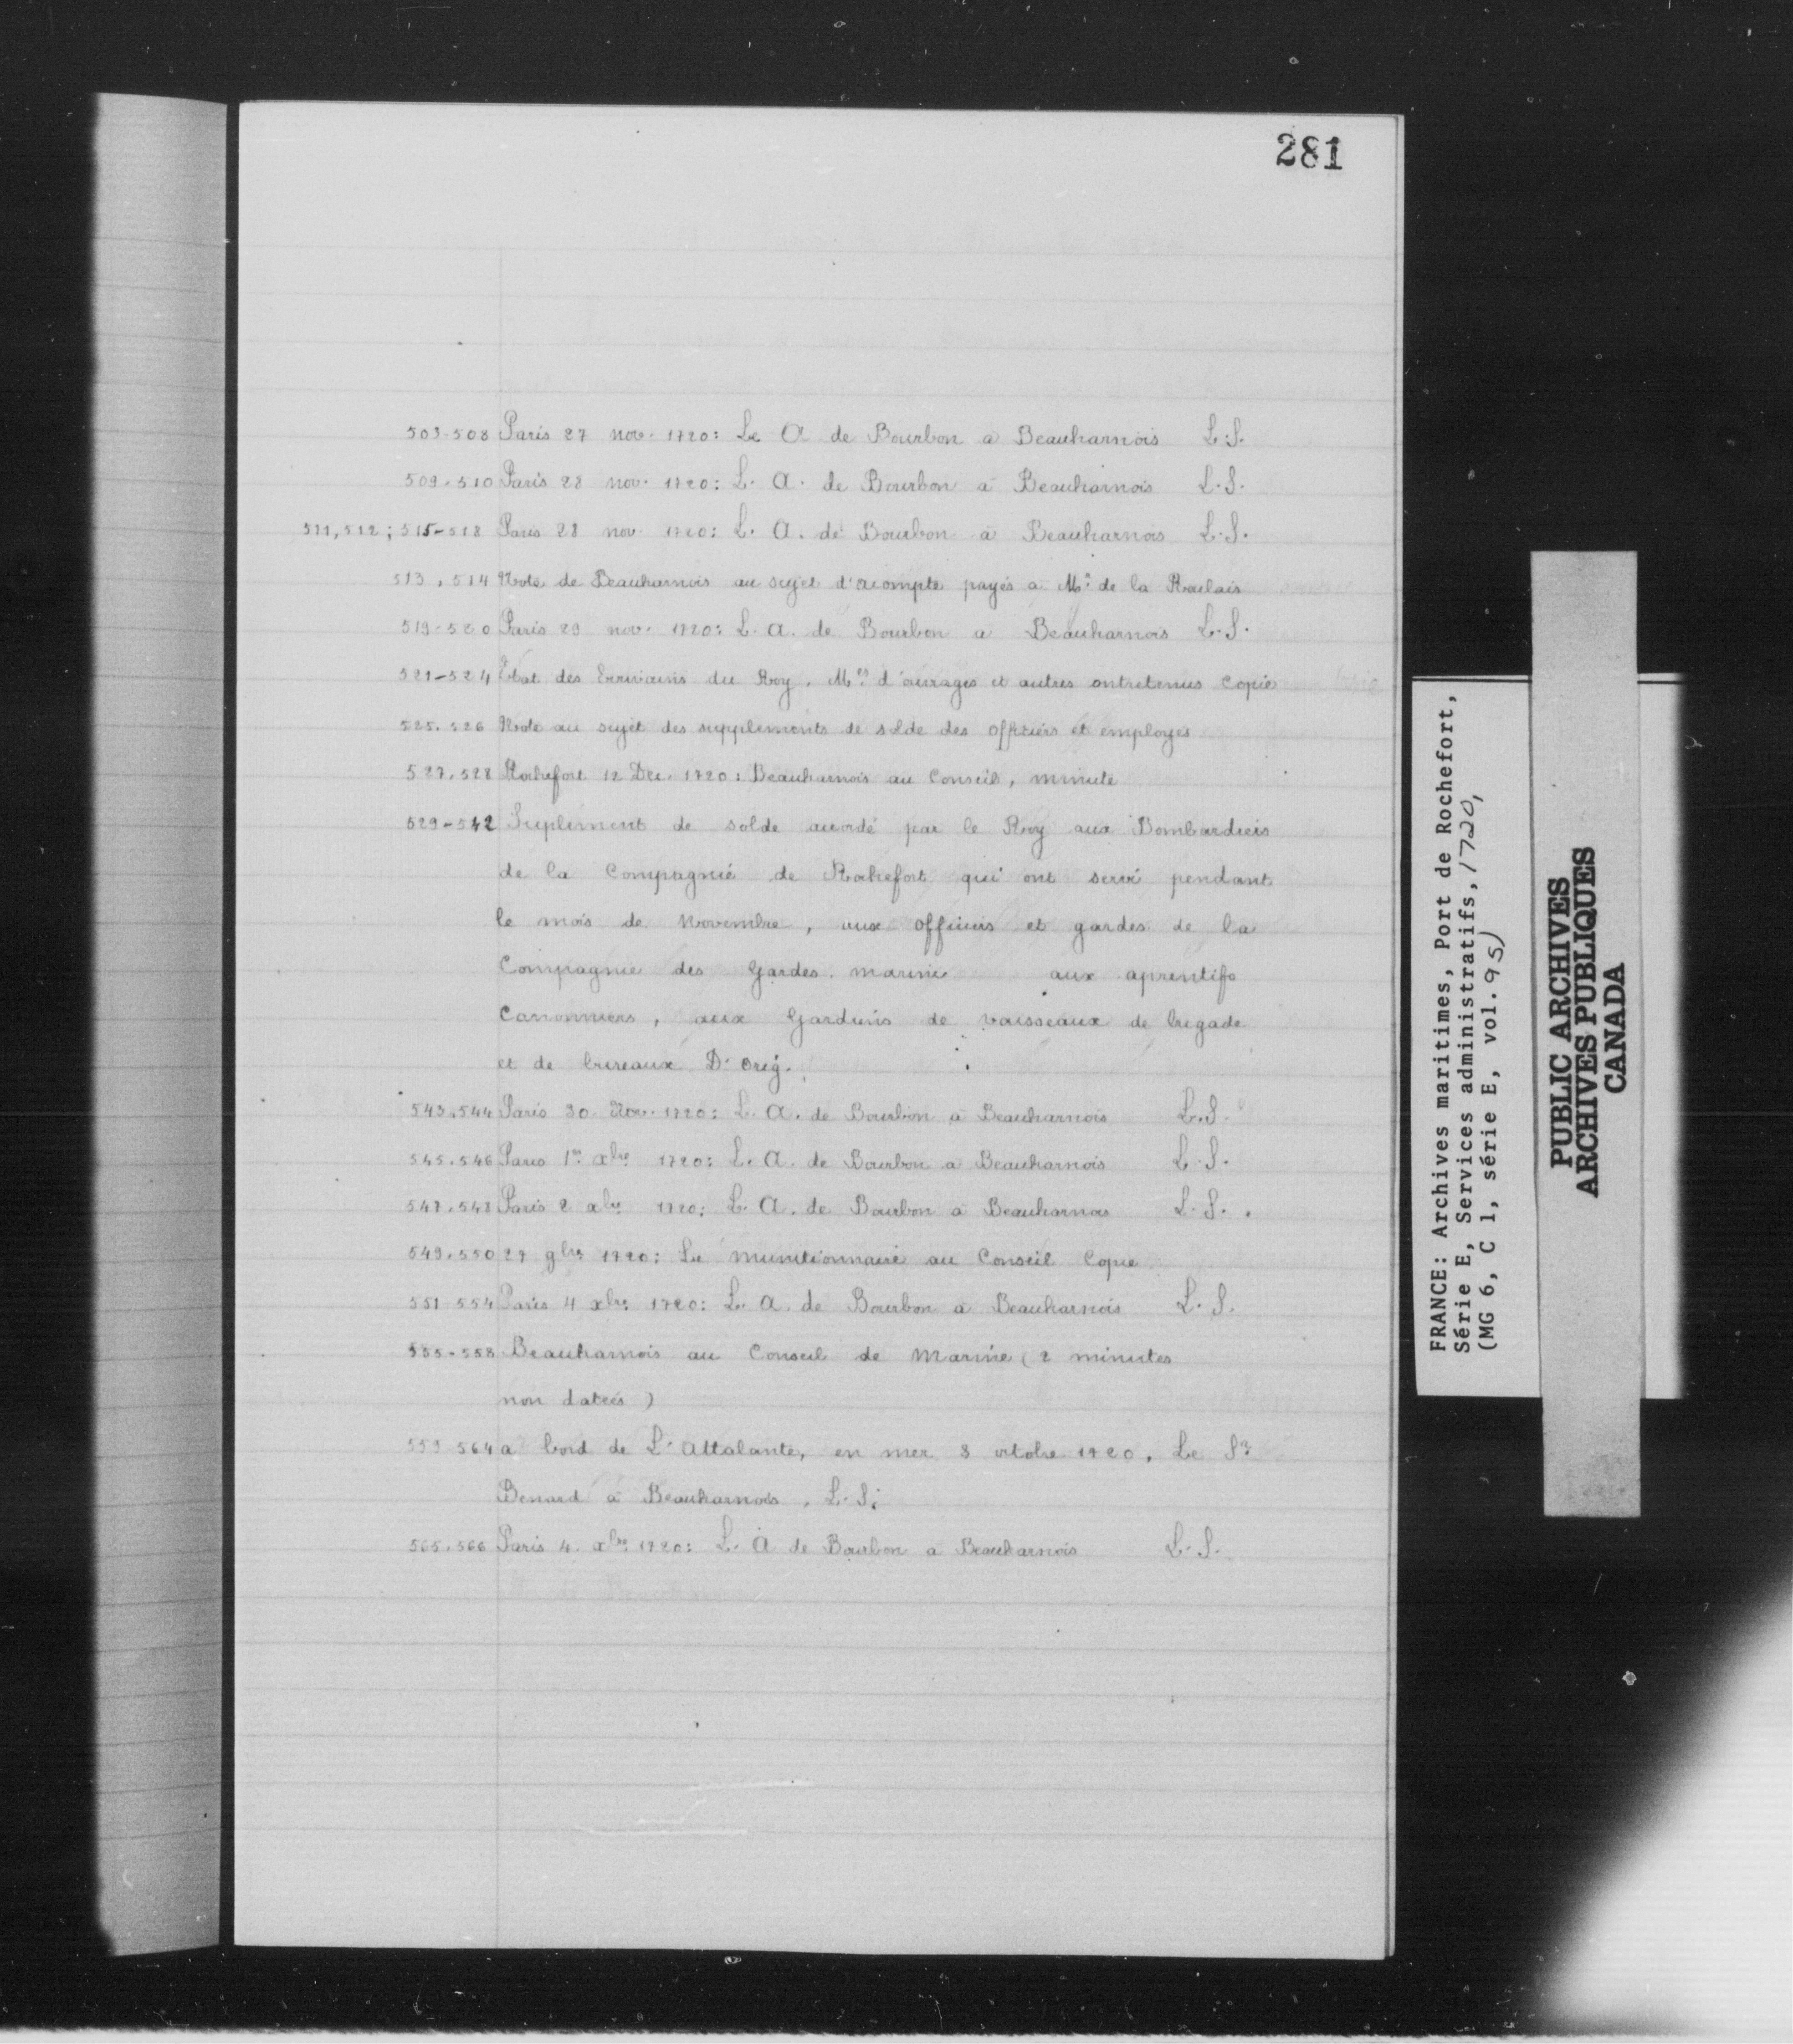 281
503-508 Paris 27 nov. 1720: Le A de Bourbon a Beauharnois L.S.
509.510 Paris 28 nov. 1720: L. A. de Bourbon a Beauharnois L.S.
511,512; 515-518 Paris 28 nov. 1720: L. A. de Bourbon a Beauharnois L.S.
513.514 Note de Beauharnois au sujet d'acompte payés a Mr. de la
519-520 Paris 29 nov. 1720: L. A. de Bourbon a Beauharnois L.S.
521-524 Etat des Ecrivains du Roy. Mes d'ouvrages et autres entretenus Copie
525.526 Note au sujet des supplements de solde des officiers et employes
527.528 Rochefort 12 Dec. 1720: Beauharnois au Conseil, minute
529-542 Suplement de solde accordé par le Roy aux Bombardiers
de la Compagnie de Rochefort qui ont servi pendant
le mois de Novembre, aux officiers et gardes de la
Compagnie des Gardes. marine aux aprentifs
Canonniers, aux Gardiens de vaisseaux de brigade
et de bureaux D. orig.
543.544 Paris 30 Nov. 1720: L. A. de Bourbon a Beauharnois L.S.
545.546 Paris 1er xbre 1720: L. A. de Bourbon a Beauharnois L.S.
547.548 Paris 2 xbre 1720: L. A. de Bourbon a Beauharnois L.S.
549.550 27 9bre 1720: Le munitionnaire au Conseil Copie
551-554 Paris 4 xbre 1720: L. A. de Bourbon a Beauharnois L.S.
555-558 Beauharnois au Conseil de Marine (2 minutes
non datées)
559.564 a bord de L'Attalante, en mer 8 octobre 1720. Le Sr
Benard a Beauharnois. L.S.
565.566 Paris 4. xbre 1720: L. A de Bourbon a Beauharnois L.S.
FRANCE: Archives maritimes, Port de Rochefort,
Série E, Services administratifs, 1720,
(MG 6, C 1, série E, vol. 95)
PUBLIC ARCHIVES
ARCHIVES PUBLIQUES
CANADA